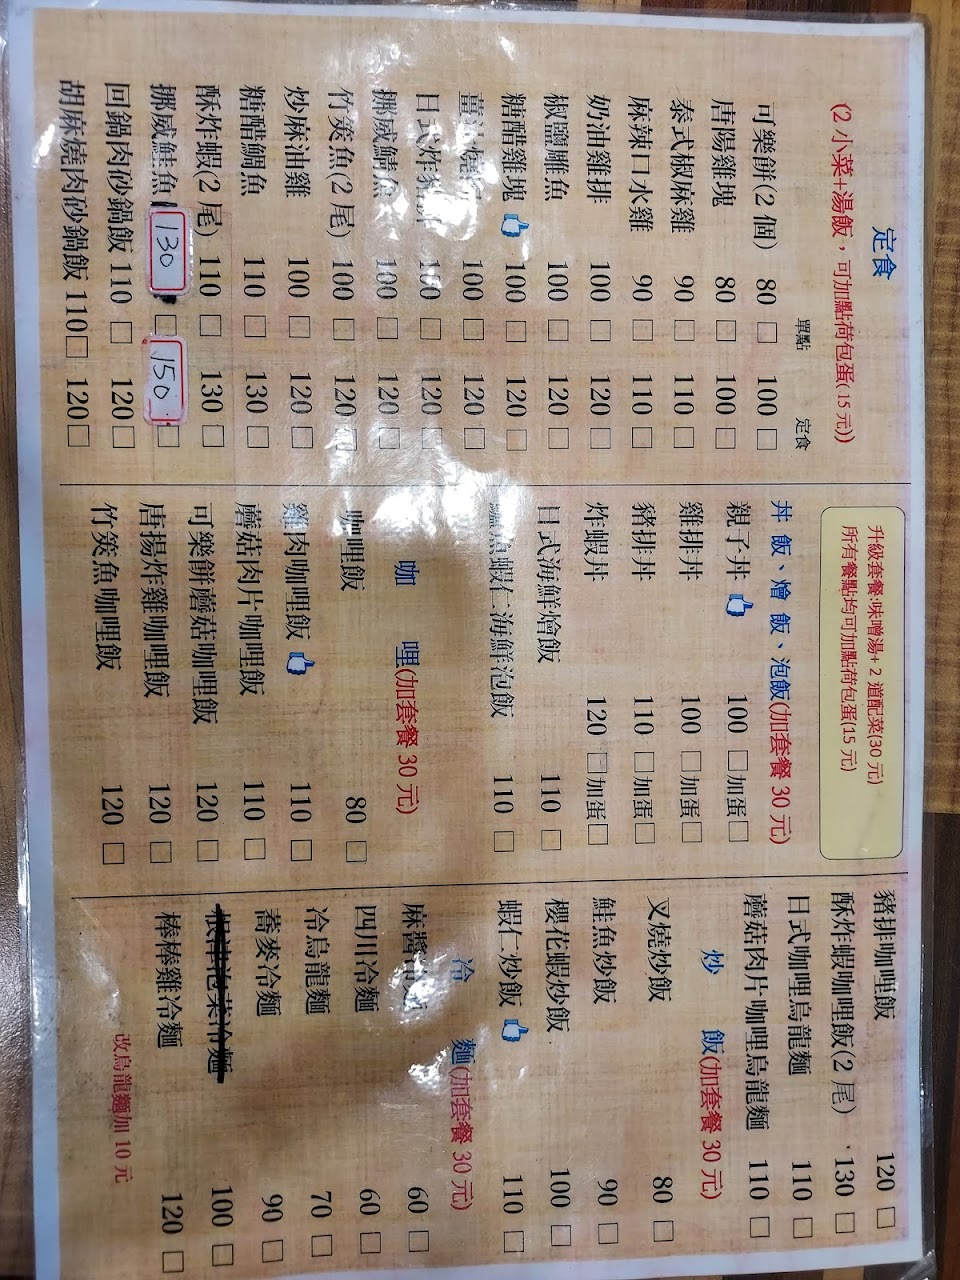 定食
(2 小菜+湯飯，可加點荷包蛋(15 元))
單點 定食
可樂餅(2 個) 80 □ 100 □
唐陽雞塊 80 □ 100 □
泰式椒麻雞 90 □ 110 □
麻辣口水雞 90 □ 110 □
奶油雞排 100 □ 120 □
椒鹽雕魚 100 □ 120 □
糖醋雞塊 100 □ 120 □
100 □ 120 □
日式炸豬排 100 □ 120 □
挪威鯖魚 100 □ 120 □
竹筴魚(2 尾) 100 □ 120 □
炒麻油雞 100 □ 120 □
糖醋鯛魚 110 □ 130 □
酥炸蝦(2 尾) 110 □ 130 □
挪威鮭魚 130 □ 150 □
回鍋肉砂鍋飯 110 □ 120 □
胡麻燒肉砂鍋飯 110 □ 120 □
升級套餐:味噌湯+ 2 道配菜(30 元)
所有餐點均可加點荷包蛋(15 元)
丼 飯、燴 飯、泡飯(加套餐 30 元)
親子丼 100 □加蛋□
雞排丼 100 □加蛋□
豬排丼 110 □加蛋□
炸蝦丼 120 □加蛋□
日式海鮮燴飯 110 □
鱸魚蝦仁海鮮泡飯 110 □
咖 哩(加套餐 30 元)
咖哩飯 80 □
雞肉咖哩飯 110 □
蘑菇肉片咖哩飯 110 □
可樂餅蘑菇咖哩飯 120 □
唐揚炸雞咖哩飯 120 □
竹筴魚咖哩飯 120 □
豬排咖哩飯 120 □
酥炸蝦咖哩飯(2 尾) 130 □
日式咖哩烏龍麵 110 □
蘑菇肉片咖哩烏龍麵 110 □
炒 飯(加套餐 30 元)
叉燒炒飯 80 □
鮭魚炒飯 90 □
櫻花蝦炒飯 100 □
蝦仁炒飯 110 □
冷 麵(加套餐 30 元)
麻醬冷麵 60 □
四川冷麵 60 □
冷烏龍麵 70 □
蕎麥冷麵 90 □
泡菜冷麵 100 □
棒棒雞冷麵 120 □
改烏龍麵加 10 元